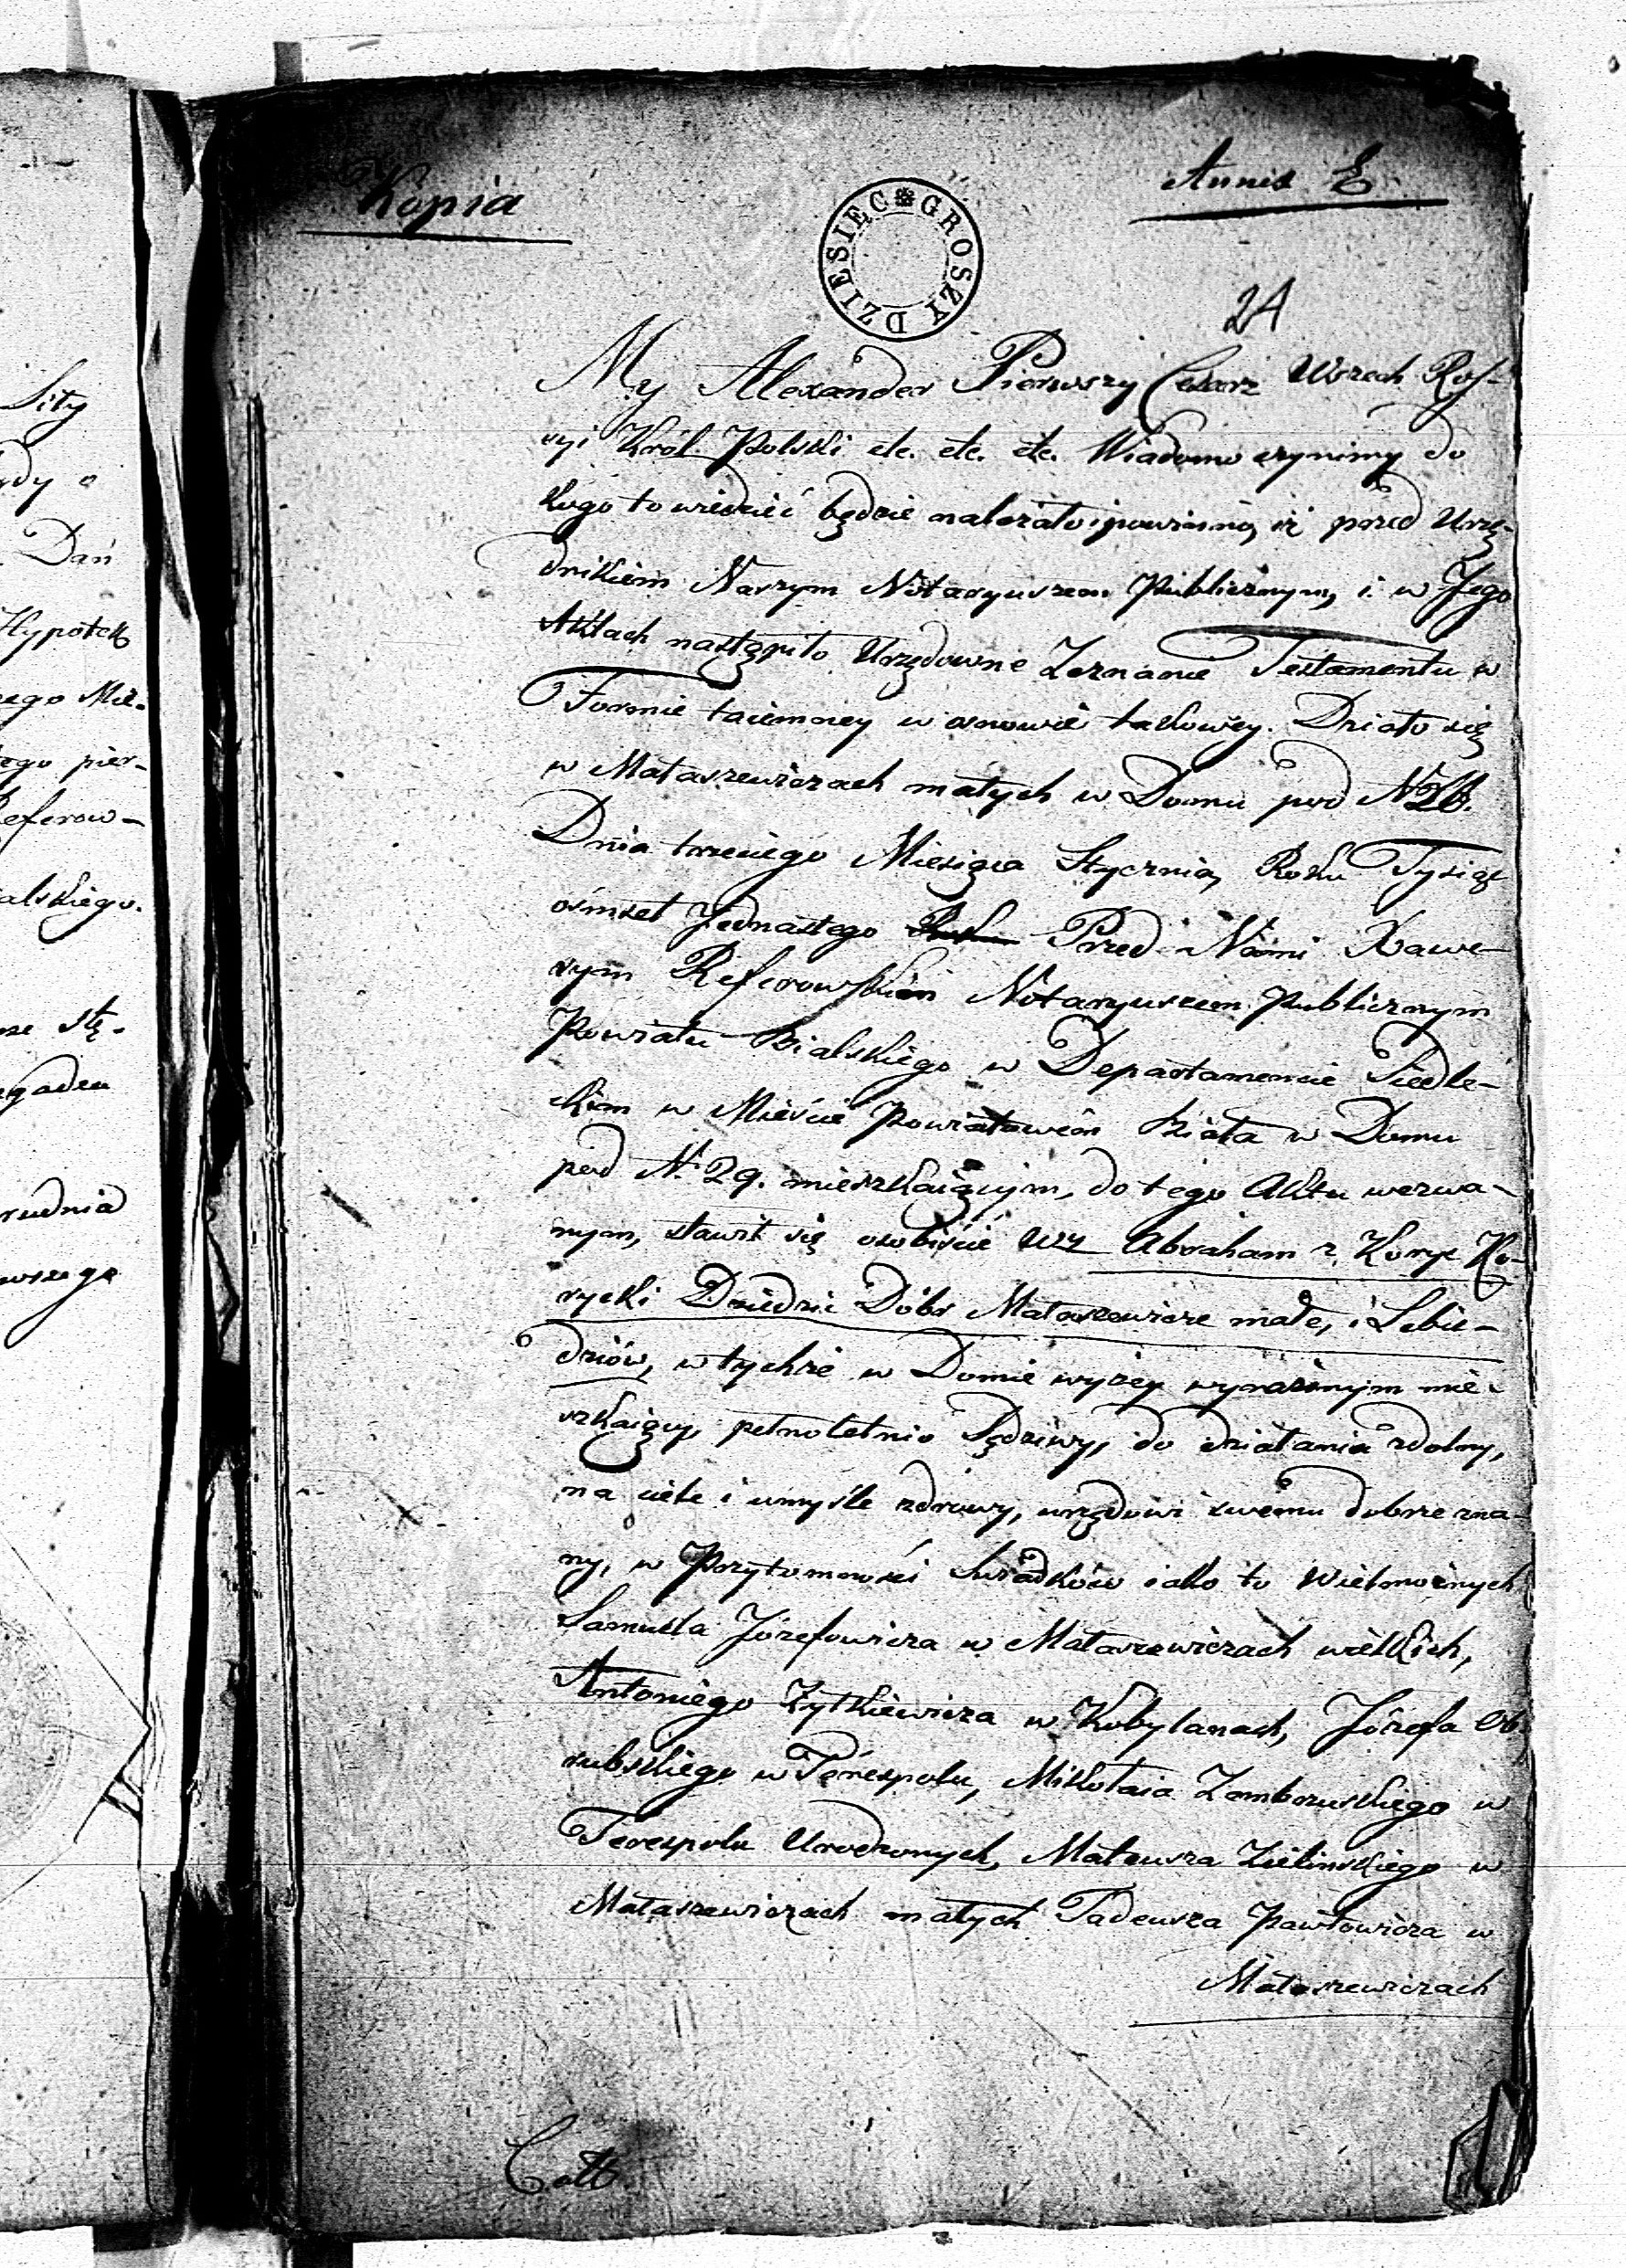 Sity
Dań
Hypotek
efrow-
alskiego.
Kopia
Annex E
DZIESIĘC GROSZY
24
My Alexander Pierwszy Cesarz Wszech Ros-
syi Król Polski etc. etc. etc. Wiadomo czynimy do
kogo to wiedzieć będzie należało i powinno, iż przed Urzę-
dnikiem Naszym Notaryuszem Publicznym, i w Jego
Aktach nastąpiło Urzędowne Zeznanie Testamentu w
Formie taiemney w osnowie takowey. Działo się
w Małaszewiczach małych w Domu pod N
Dnia trzeciego Miesiąca Stycznia, Roku Tysiąc
ośmset Jednastego Przed Nami Xawe-
rym Referowskim Notaryuszem Publicznym
Powiatu Bialskiego w Departamencie Siedle-
ckim w Mieście Powiatowém Biała w Domu
pod N. 29. mieszkaiącym, do tego Aktu wezwa-
nym, stawił się osobiście Abraham z Koryc Ko-
rycki Dziedzic Dóbr Małaszewicze małe, i Lebie-
dziów, w tychże w Domie wyżey wyrażonym mie-
szkaiący, pełnoletnio Sędziwy, do działania zdolny,
na ciele i umyśle zdrowy, urzędowi swemu dobrze zna-
ny, w Przytomności Swiadków iako to Wielmożnych
Samuela Józefowicza w Małaszewiczach wielkich,
Antoniego Żytkiewicza w Kobylanach, Józefa Ob
rubskiego w Terespolu, Mikołaia Zambrzuskiego w
Terespolu Urodzonych, Mateusza Zielinskiego w
Małaszewiczach małych Tadeusza Pawłowicza w
Małaszewiczach